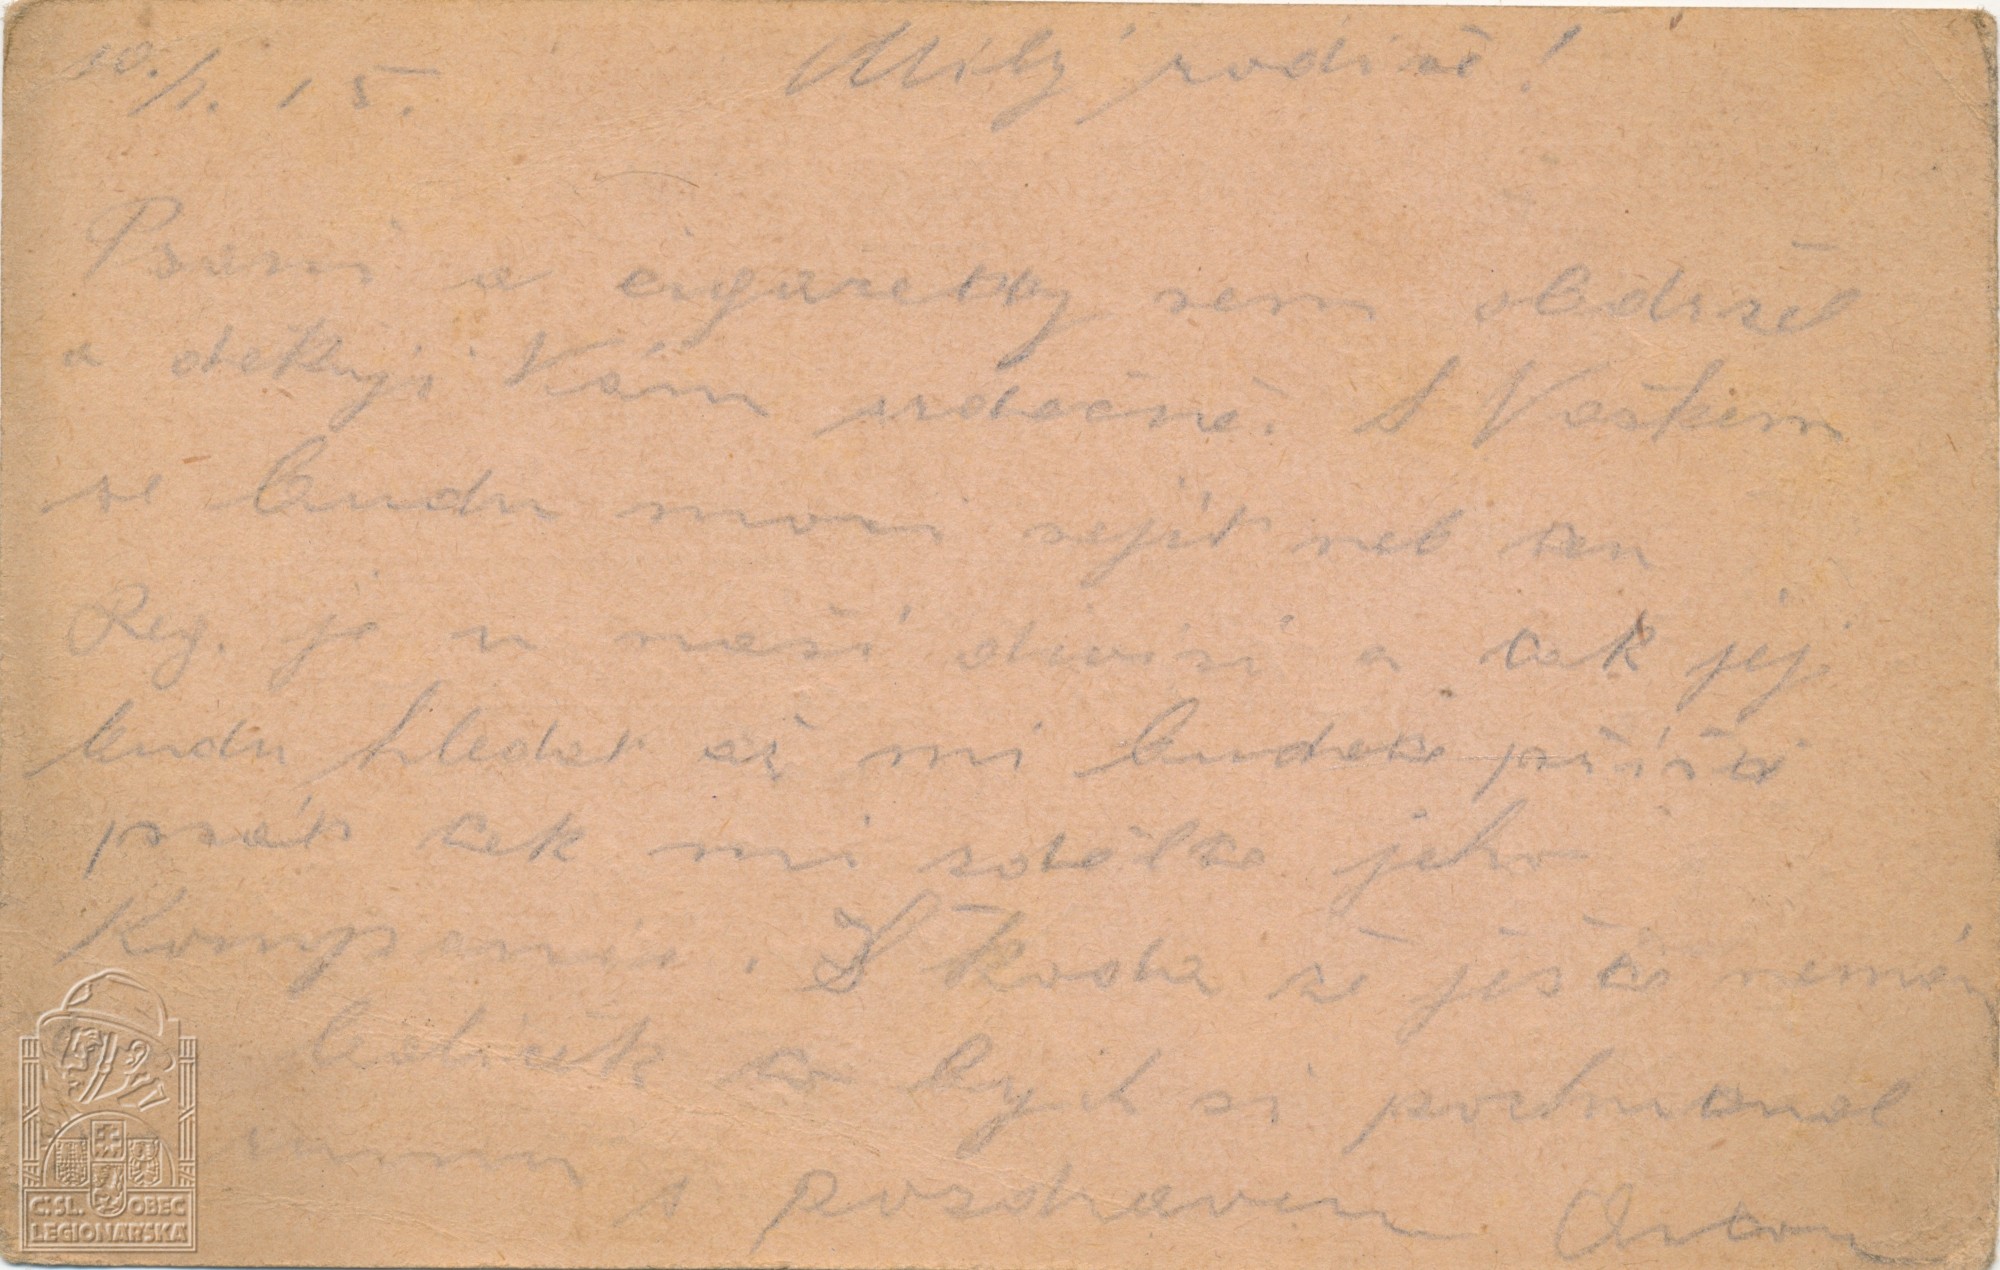 10./1. 15. Milý rodiče!
Psaní a cigaretky sem obdržel
a děkuji Vám srdečně. S Vaškem
se budu moci sejít neb ten
Reg. je u naší divisi a tak jej
budu hledat až mi budete příště
psát tak mi sdělte jeho
Kompanii. Škoda že ještě nemám
to bych si pochutnal
s pozdravem Anton
C'SL. OBEC
LEGIONÁŘSKÁ